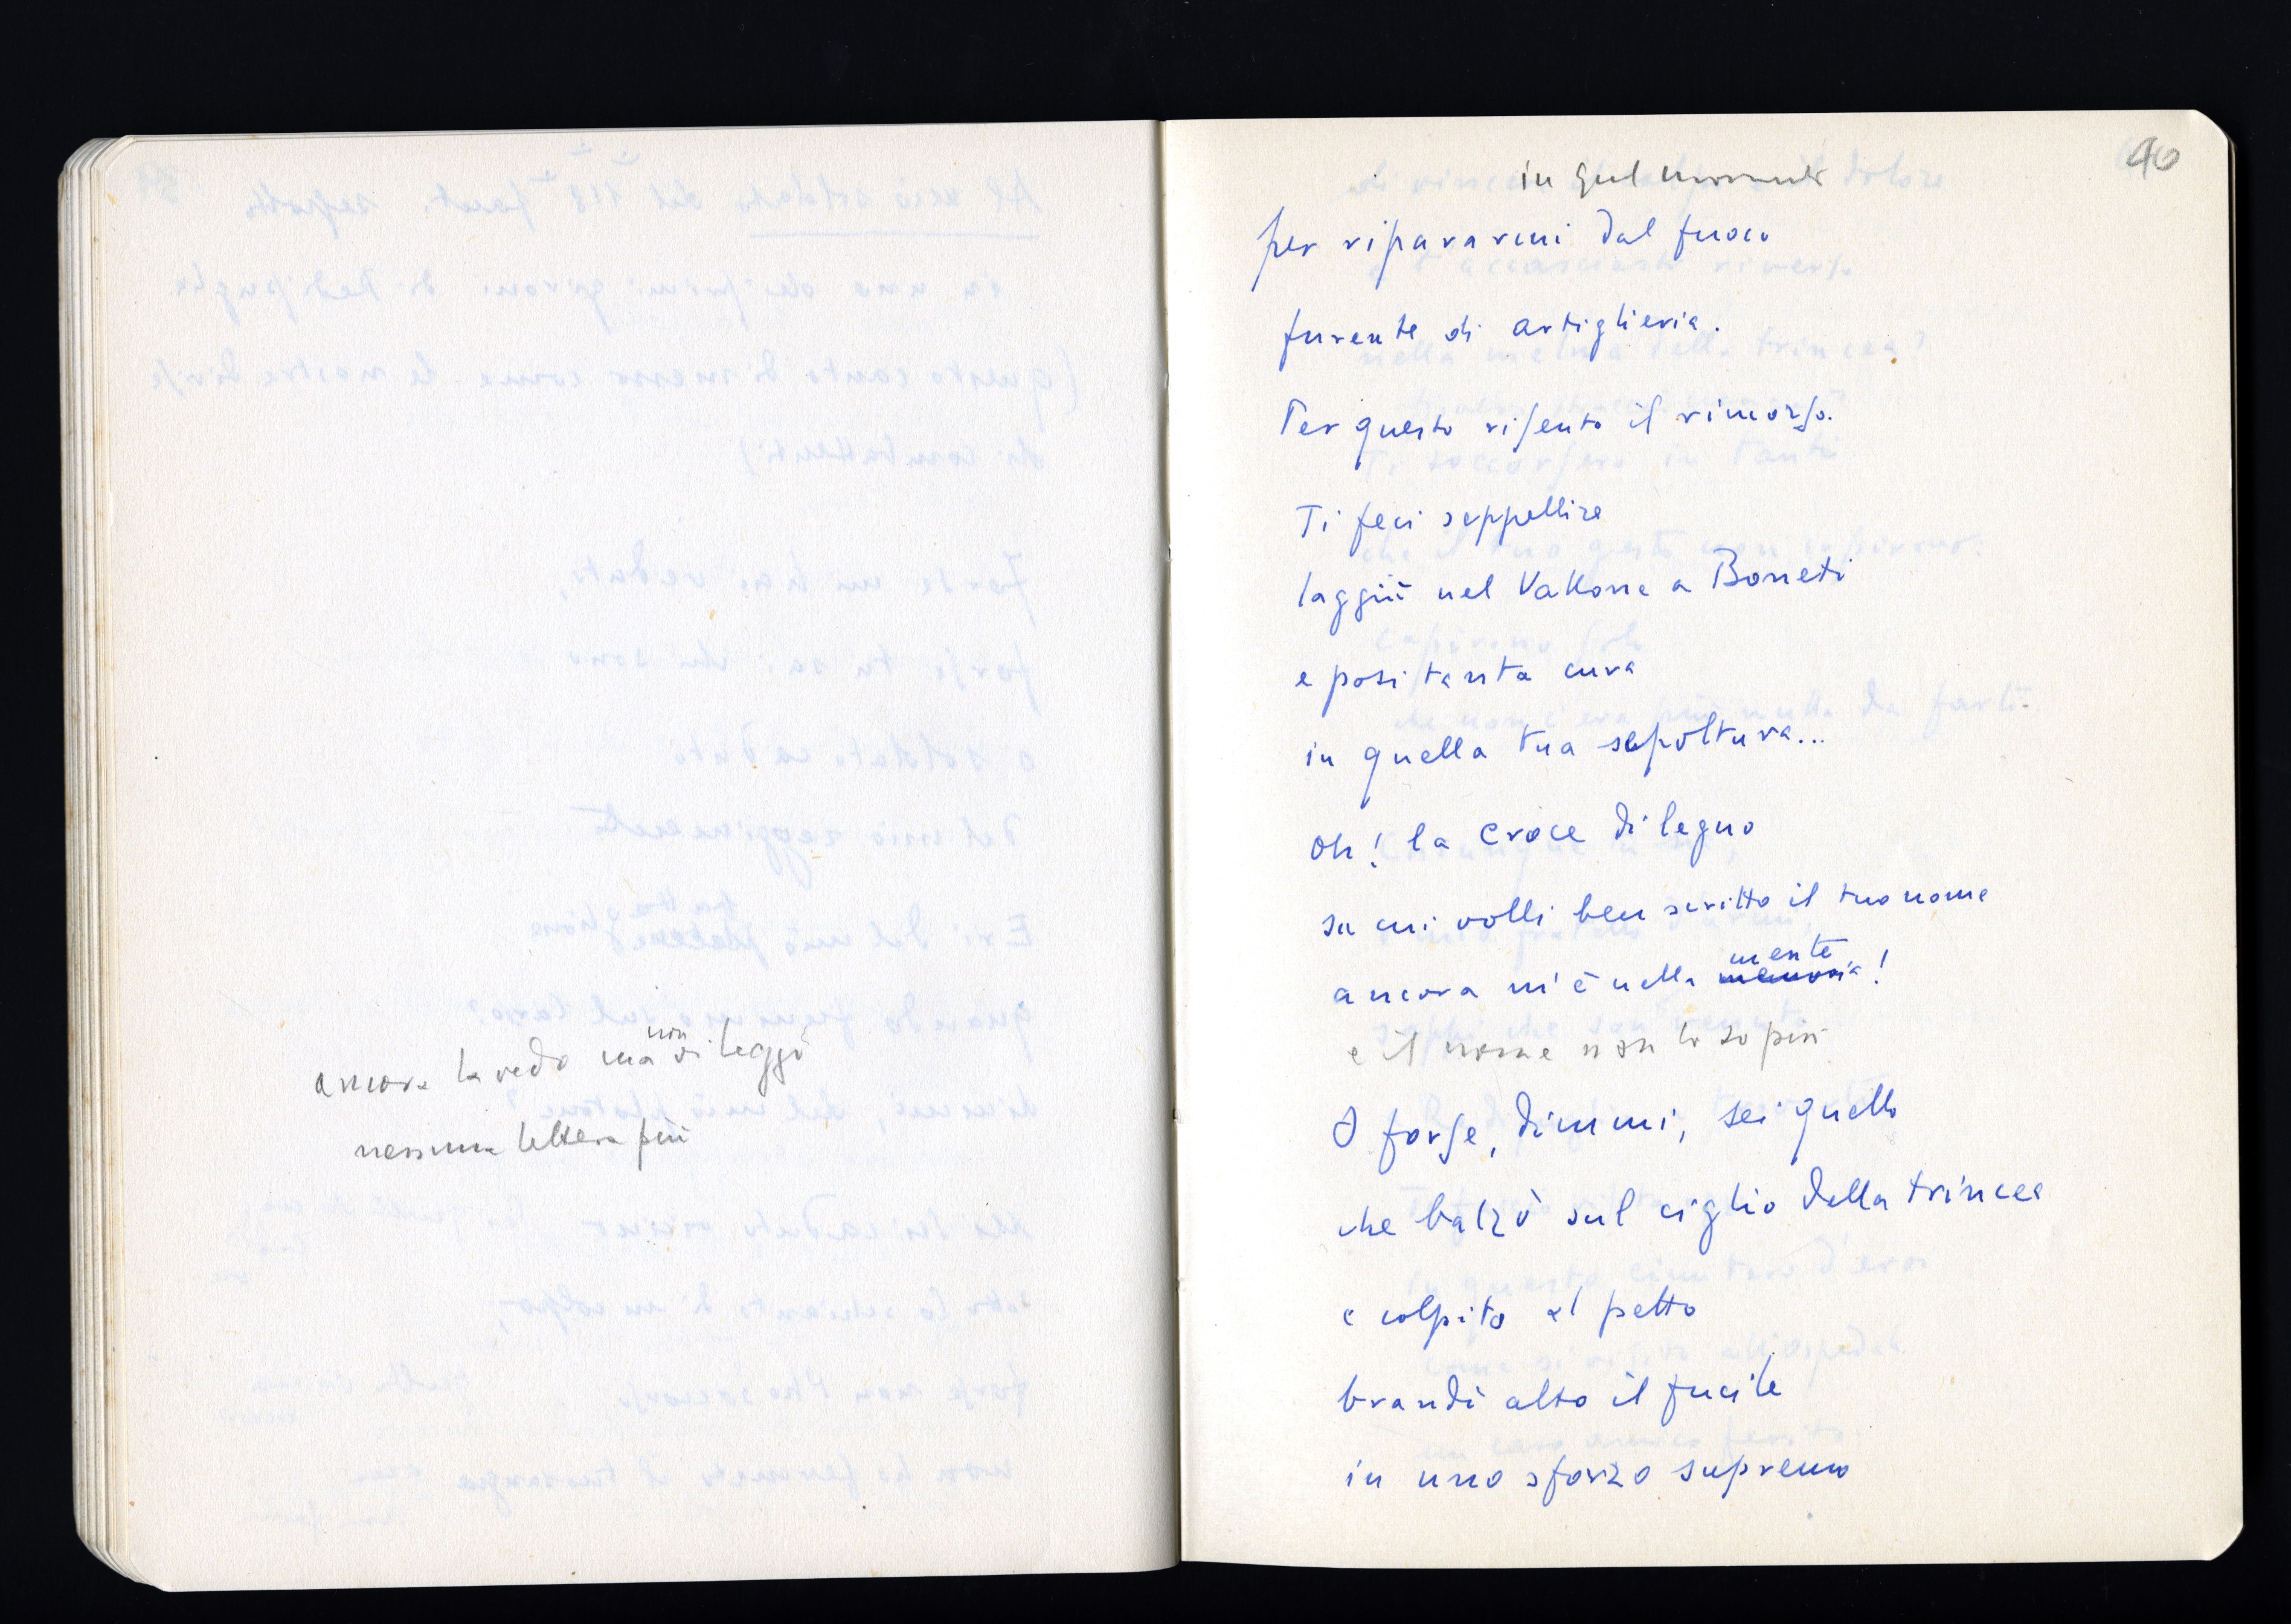 ancora la vedo ma non vi leggo
nessuna lettera più
40
in quel momento
per ripararmi dal fuoco
furente di artiglieria.
Per questo risento il rimorso.
Ti feci seppellire
laggiù nel Vallone a Boneti
e posi tanta cura
in quella tua sepoltura...
Oh! la croce di legno
su cui volli ben scritto il tuo nome
ancora m'è nella memoria mente!
e il nome non lo so più
O forse, dimmi, sei quello
che balzò sul ciglio della trincea
e colpito al petto
brandì alto il fucile
in uno sforzo supremo